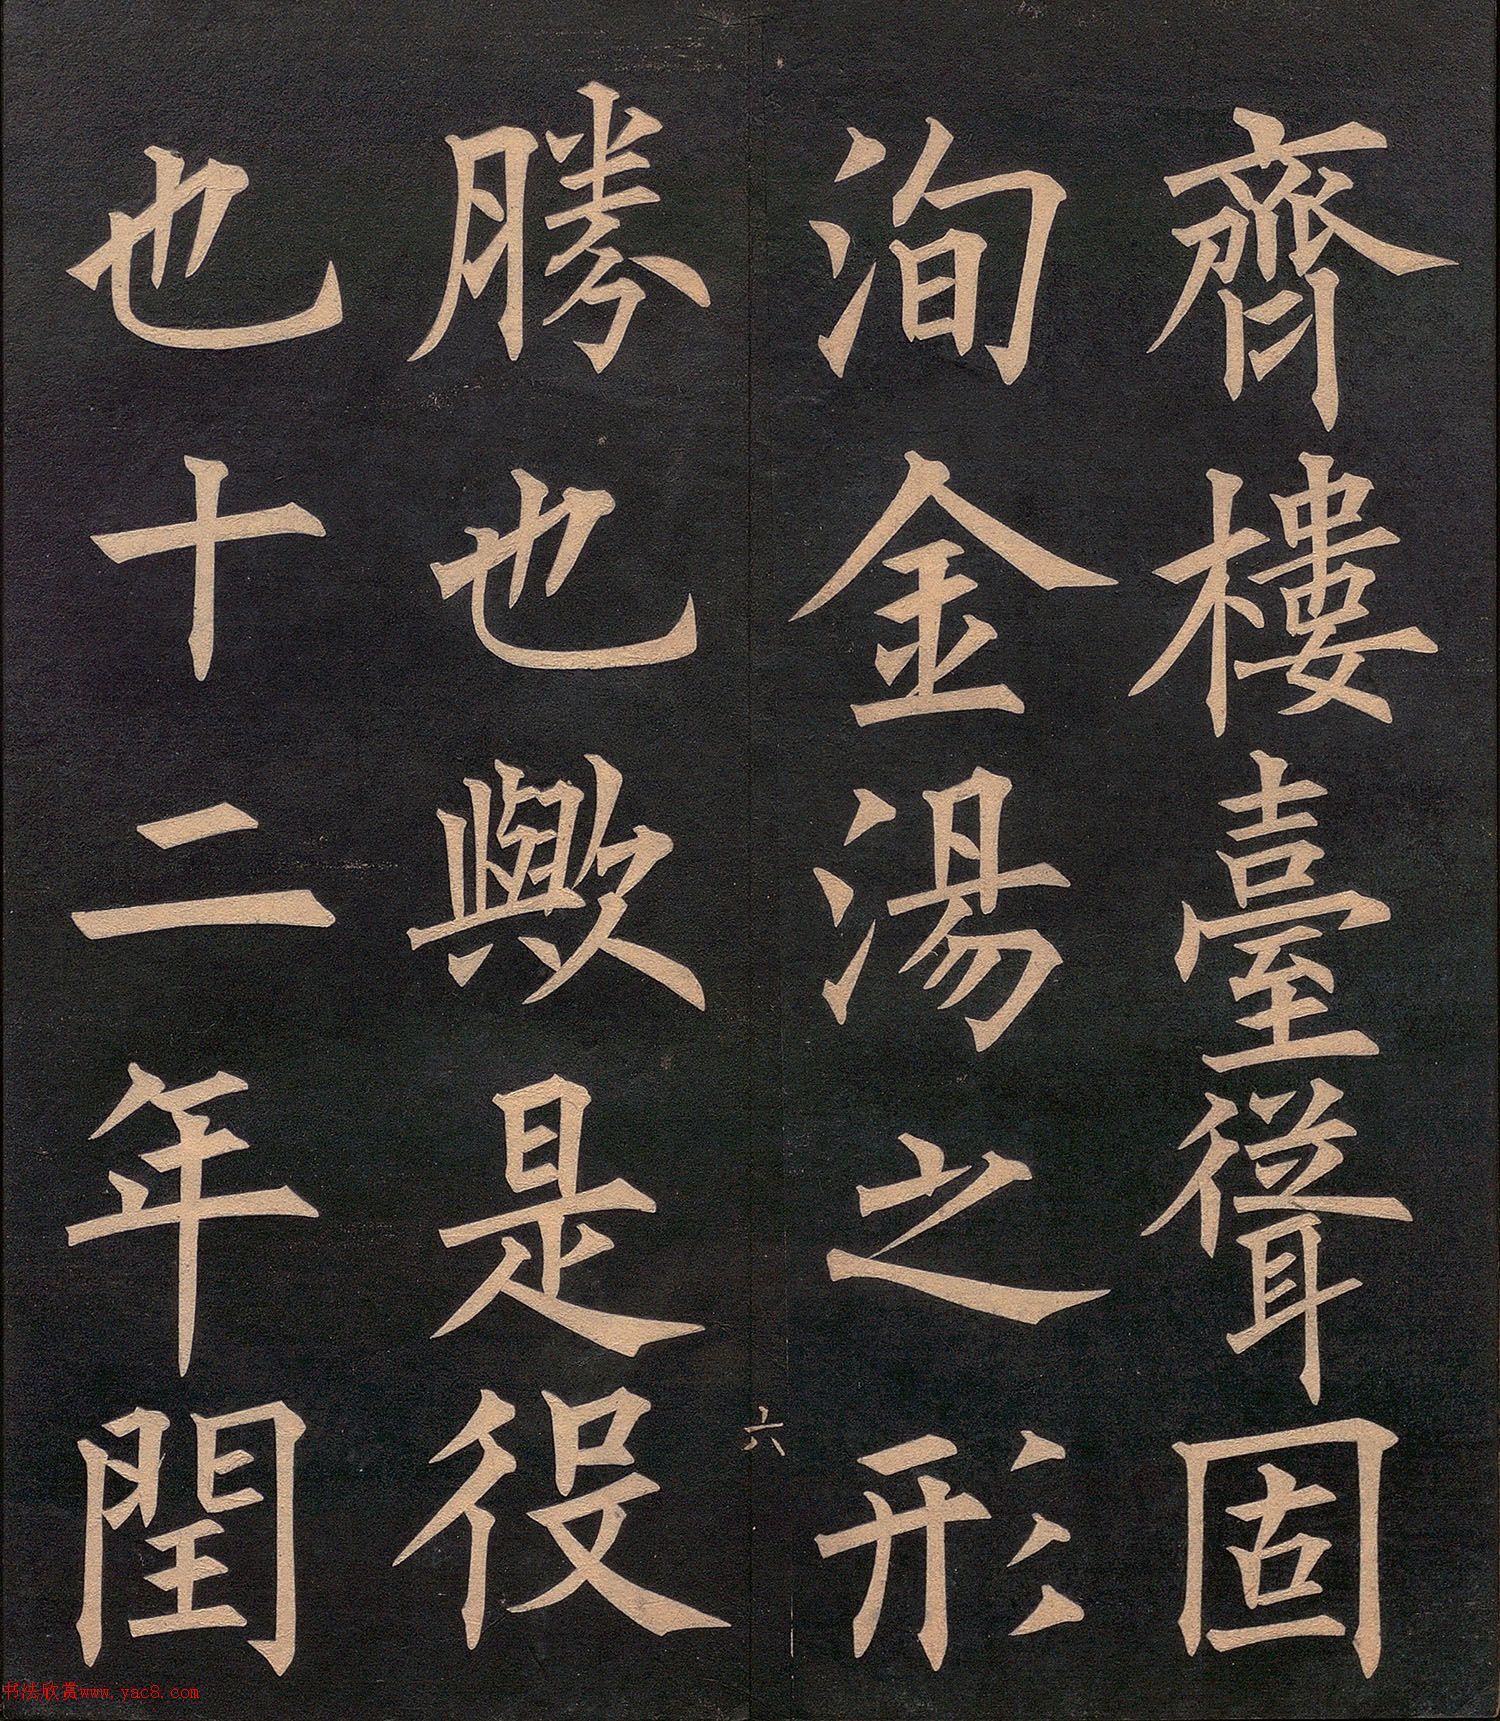 齊樓臺聳固
洵金湯之形
勝也歟是役
也十二年閏
六
书法欣赏www.yac8.com